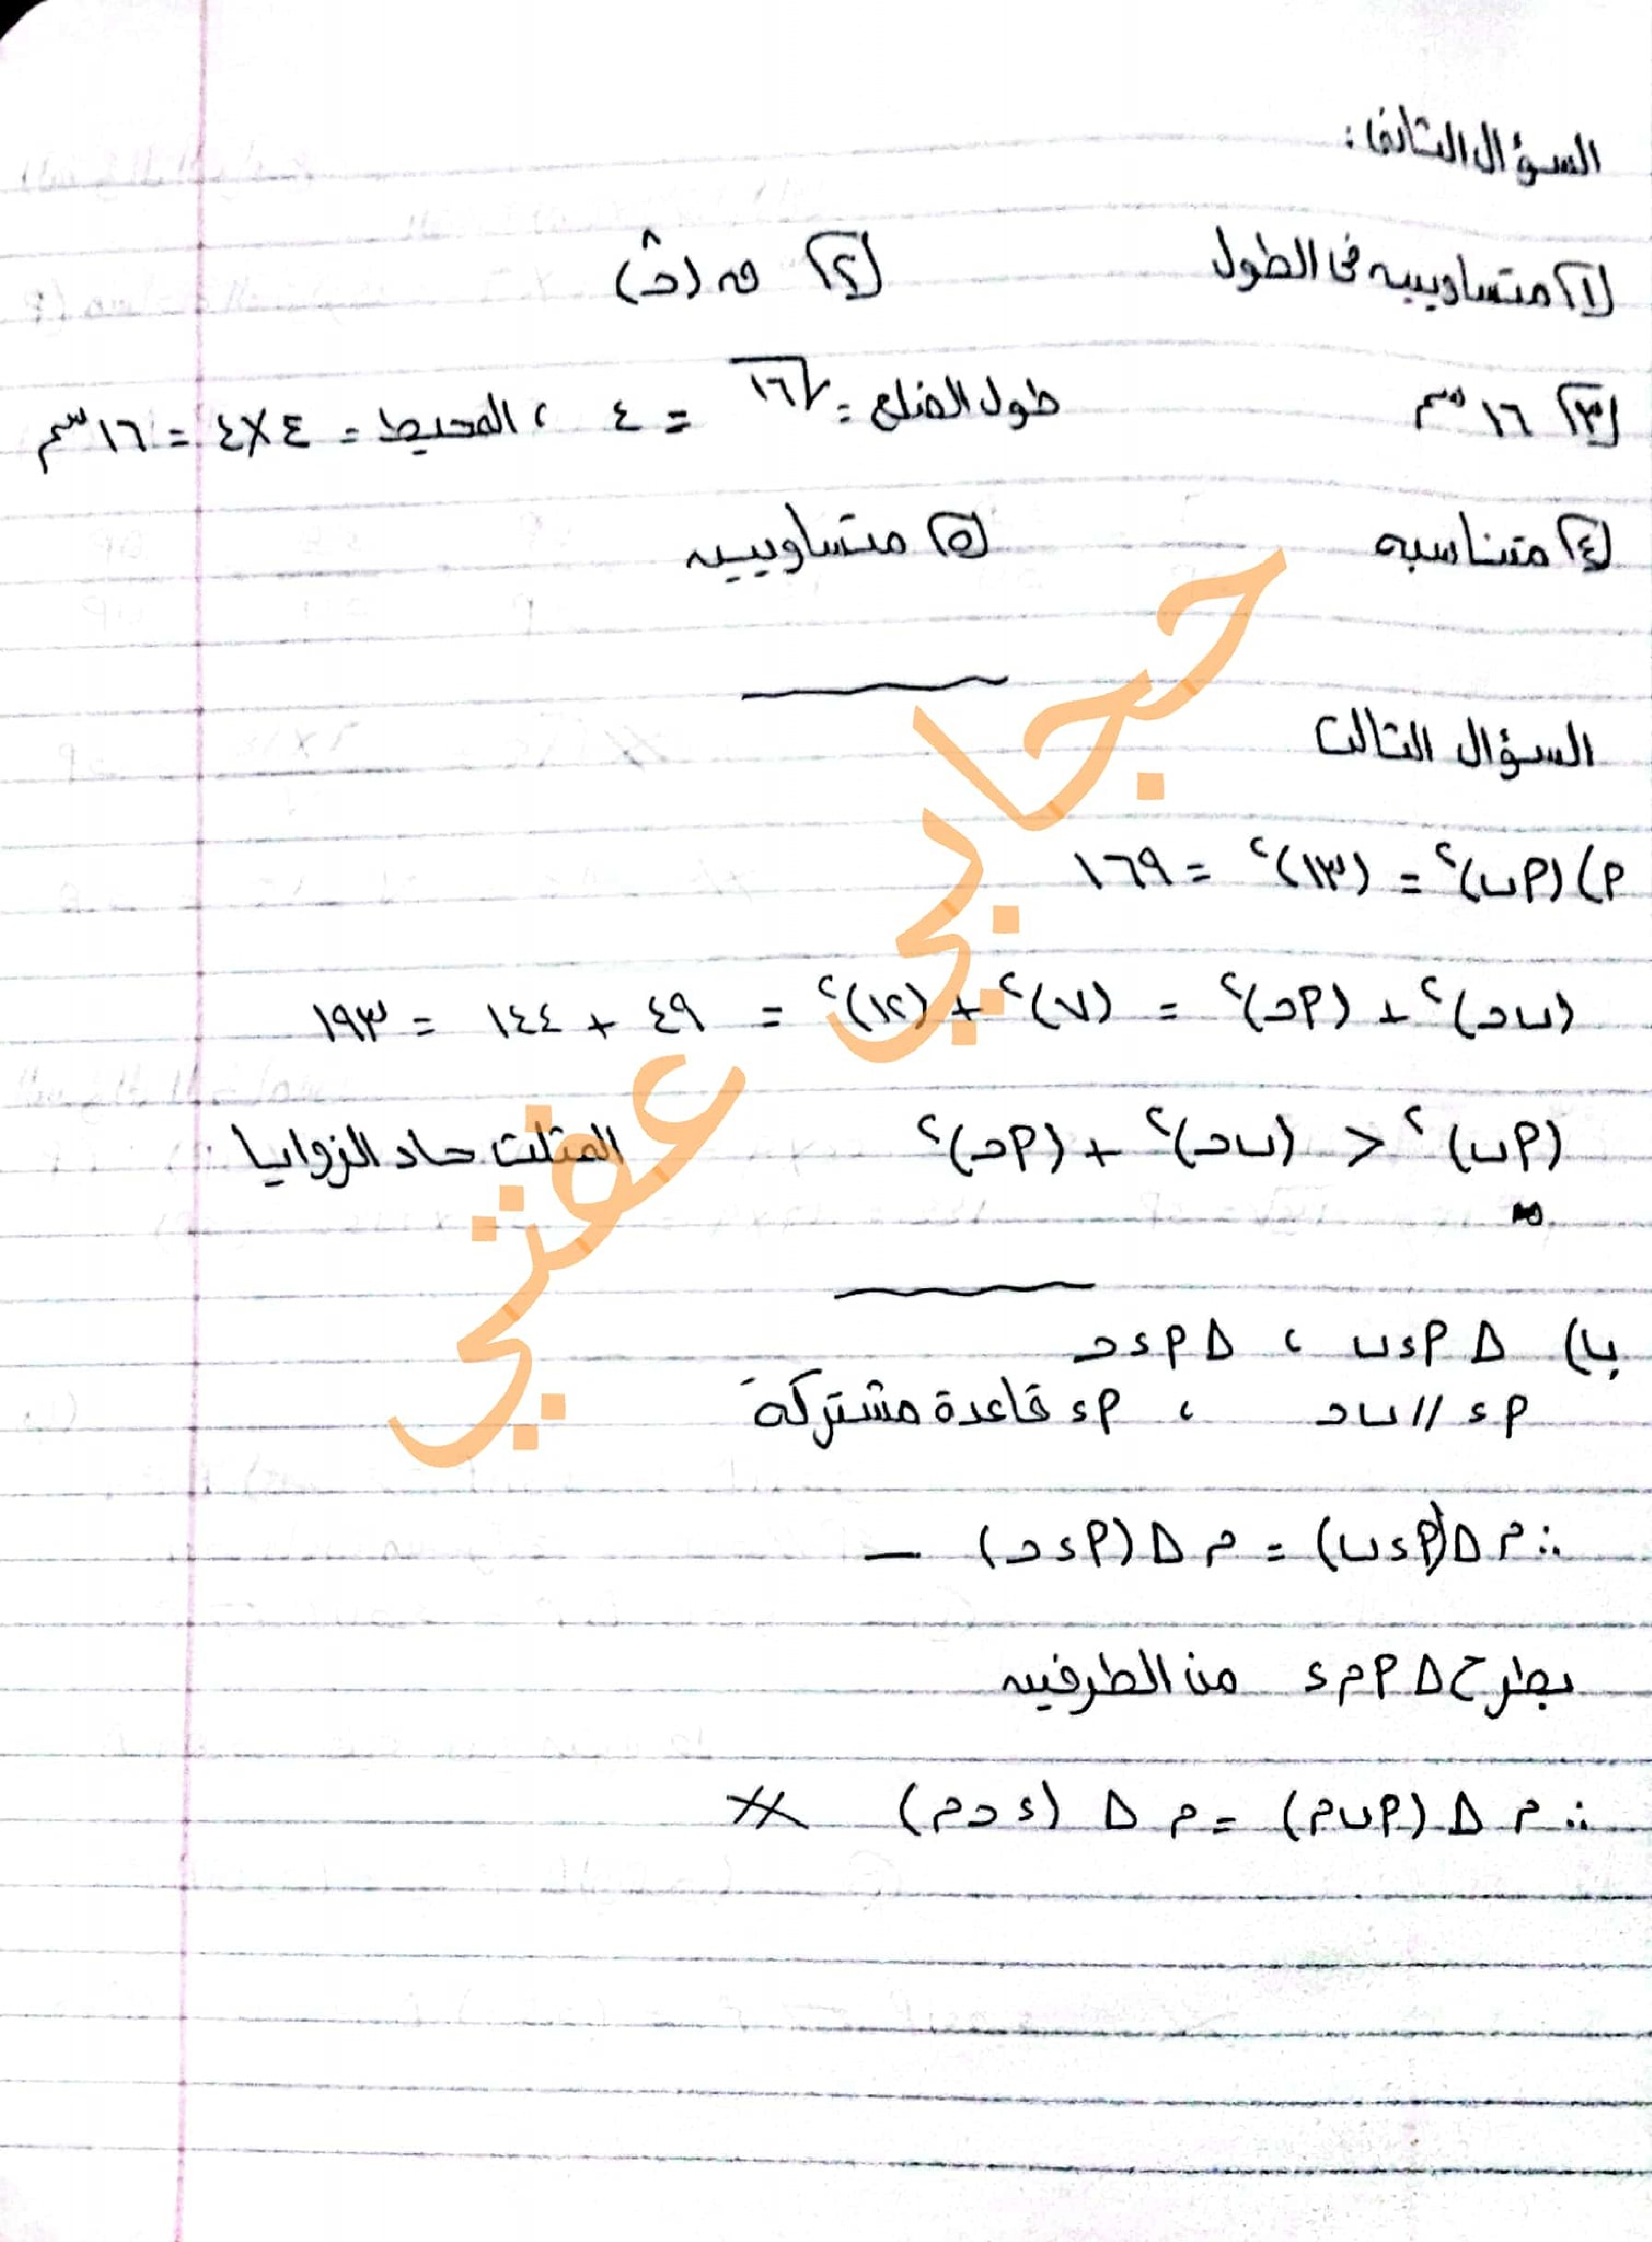 السؤال الثانى :
١) متساويين فى الطول ٢) ق (حـ^)
٣) ١٦ سم طول الضلع = √١٦ = ٤ ، المحيط = ٤ × ٤ = ١٦ سم
٤) متناسبه ٥) متساويين
السؤال الثالث
أ) (أب)² = (١٣)² = ١٦٩
(بحـ)² + (أحـ)² = (٧)² + (١٢)² = ٤٩ + ١٤٤ = ١٩٣
(أب)² < (بحـ)² + (أحـ)² المثلث حاد الزوايا
ب) Δ أ ء ب ، Δ أ ء حـ
أ ء // ب حـ ، أ ء قاعدة مشتركة
∴ م Δ (أ ء ب) = م Δ (أ ء حـ) ـ
بطرح Δ أ م ء من الطرفين
∴ م Δ (أ ب م) = م Δ (ء حـ م) #
حجابي عفتي